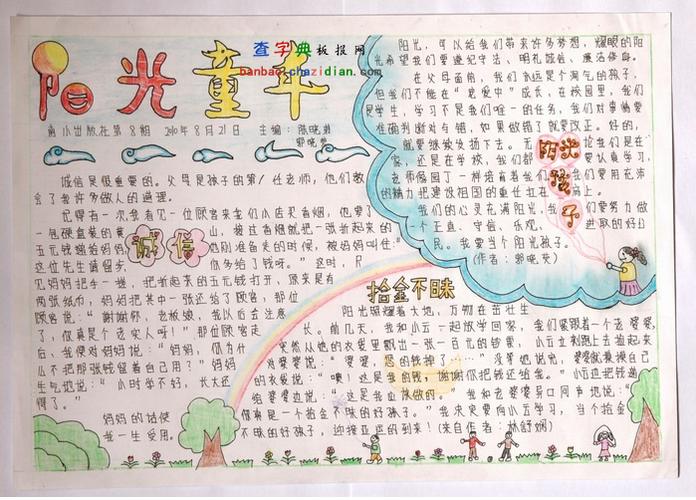 查字典板报网
banbao.chazidian.com
阳光童年
第8期 2010年8月21日 主编：陈晓燕
诚信是很重要的。父母是孩子的第一任老师，他们教
会了我许多做人的道理。
记得有一次我看见一位顾客来我们小店买香烟，他拿了
一包硬盒装的黄山，接过香烟就把一张折起来的
五元钱递给妈妈 他刚准备走的时候，被妈妈叫住：
这位先生请留步 你多给了钱呀。”这时，只
见妈妈把手一搓，把折起来的五元钱打开，原来是有
两张纸币，妈妈把其中一张还给了顾客，那位
顾客说：“谢谢你，老板娘，我以后会注意
了，你真是个老实人呀！”那位顾客走
后，我便对妈妈说：“妈妈，你为什
么不把那张钱留着自己用？”妈妈
生气地说：“小时学不好，长大还
得了。”
妈妈的话使
我一生受用。
诚信
阳光，可以给我们带来许多梦想，耀眼的阳
光希望我们要遵纪守法、明礼诚信、廉洁修身。
在父母面前，我们永远是个淘气的孩子，
但我们不能在“溺爱中”成长，在校园里，我们
是学生，学习不是我们唯一的任务，我们对事情要
准确判断对与错，如果做错了就要改正。好的，
就要继续发扬下去。无论我们是在
家，还是在学校，我们都要认真学习，
老师像园丁一样培育着我们，我们要用在沛
的精力把建设祖国的重任扛在肩上。
我们的心灵充满阳光，我们要努力做
一个正直、守信、乐观、进取的好公
民。我要当个阳光孩子。
（作者：郭晓英）
阳光孩子
拾金不昧
阳光照耀着大地，万物在茁壮生
长。前几天，我和小云一起放学回家，我们紧跟着一个老婆婆，
突然从她的衣袋里飘出一张一百元的钞票，小云立刻跑上去捡起来
对婆婆说：“婆婆，您的钱掉了……”没等她说完，婆婆就摸摸自己
的衣袋说：“噢！这是我的钱，谢谢你把钱还给我。”小云边把钱递
给婆婆边说：“这是我应该做的。”我和老婆婆异口同声地说：“
你真是一个拾金不昧的好孩子。”我决定要向小云学习，当个拾金
不昧的好孩子，迎接亚运的到来！（来自作者：林舒娴）